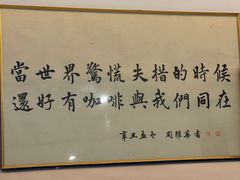 當世界驚慌失措的時候
還好有咖啡與我們同在
辛丑孟冬 周